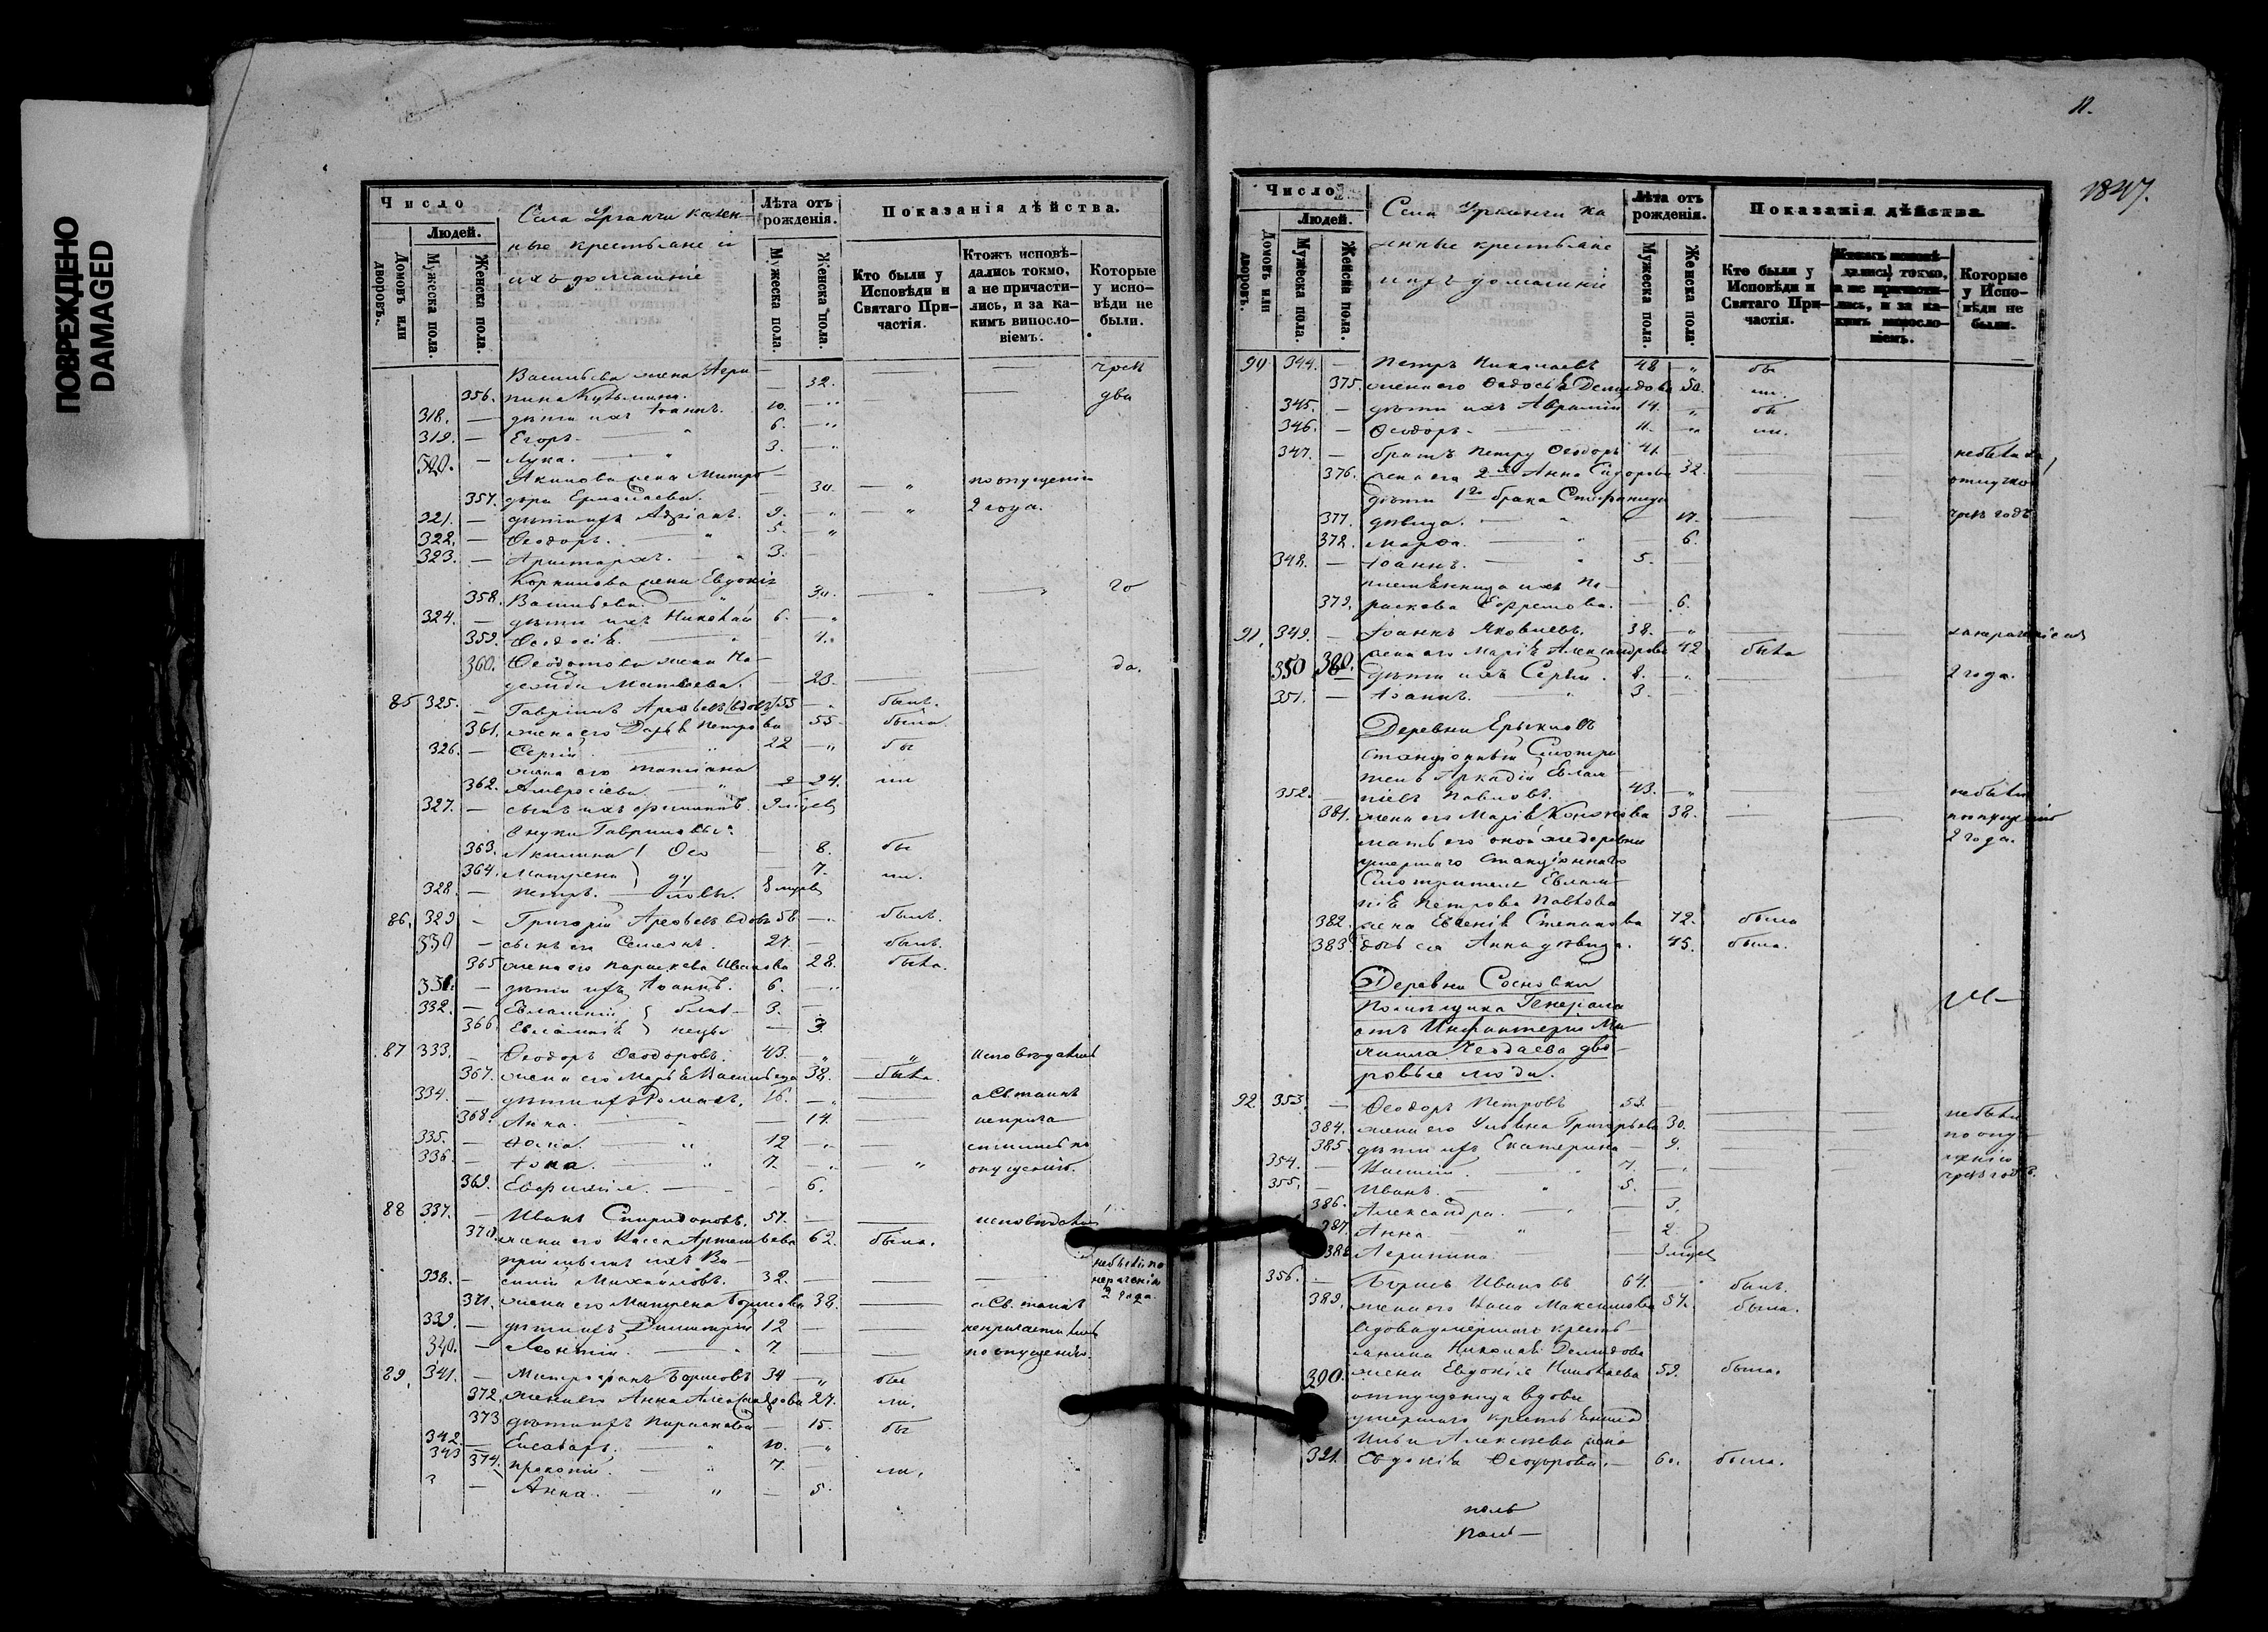 ПОВРЕЖДЕНО
DAMAGED
Число
Людей.
Домовъ или дворовъ.
Мужеска пола.
Женска пола.
Села Урганчи казен-
ные крестьяне и
ихъ домашніе
Лѣта отъ рожденія.
Мужеска пола.
Женска пола.
Показанія дѣйства.
Кто были у Исповѣди и Святаго Причастія.
Ктожъ исповѣдались токмо, а не причастились, и за какимъ винословіемъ.
Которые у исповѣди не были.
Васильева жена Агри-
356. пина Кузьмина. 32.
318. — дѣти ихъ Іоаннъ. 10. два
319. — Егоръ. 6.
320. — Лука. 3.
Акимова жена Митро- по опущенію
357. дора Ермолаева. 30.
321. — дѣти ихъ Адріанъ. 9. 2 года.
322. — Ѳеодоръ. 5.
323. — Аристархъ. 3.
жена Евдокія го
358. Васильева. 30.
324. — дѣти ихъ Николай 6.
359. Ѳеодосія. 4.
360. Ѳеодотова жена На- да.
дежда Матвѣева. 23.
85 325. — Гавріилъ вдовъ 55 былъ.
361. жена его Дарья Петрова 55 была.
326. — Сергій 22 бы
жена его Татіана
362. Амвросіева. 24. ли
327. — сынъ ихъ
внуки Гавриловы:
363. Акилина Ѳео 8. бы
364. Матрена ду 7. ли.
328. — Петръ. ловы. 8 мѣсяц
86. 329 — Григорій вдовъ 58 былъ.
330 — сынъ его Семенъ. 27. былъ.
365 жена его Параскева Иванова 28. была.
331. — дѣти ихъ Іоаннъ. 6.
332. — Евлампій близ- 3.
366. Евлампія нецы 3.
87 333. — Ѳеодоръ Ѳеодоровъ. 43. исповѣдались
367. жена его Марья Васильева 38. была.
334. — дѣти ихъ Романъ. 16. а Св. таинъ
368. Анна. 14. неприча-
335. — 12 стились по
336. — Іона. 7. опущенію.
369. Евфимія. 6.
88 337. — Иванъ Спиридоновъ. 57. исповѣдался
370. жена его Васса Артемьева 62. была.
ихъ Ва- небыли по
338. — силій Михайловъ. 32. нераденію
371. жена его Матрена Борисова 38. а Св. таинъ 2 года.
339. — дѣти ихъ Димитрій 12 непричастились
340. — Леонтій. 7. по опущенію.
89. 341. — Митрофанъ Борисовъ 34 бы
372. жена его Анна Александрова 27. ли.
373 дѣти ихъ Параскева 15. бы
342. — 10.
343 374. Прокопій. 7. ли.
— Анна. 5.
11.
1847.
Число
Людей.
Домовъ или дворовъ.
Мужеска пола.
Женска пола.
Села Урганчи ка
зенные крестьяне
и ихъ домашніе
Лѣта отъ рожденія.
Мужеска пола.
Женска пола.
Показанія дѣйства.
Кто были у Исповѣди и Святаго Причастія.
Ктожъ исповѣдались токмо, а не причастились, и за какимъ винословіемъ.
Которые у Исповѣди не были.
90 344. — Петръ Николаевъ 48 бы
375. жена его Ѳедосья Демидова 50. ли.
345. — дѣти ихъ Аврамій 14. бы
346. — Ѳеодоръ 11. ли.
347. — братъ Петру Ѳеодоръ 41 небыли за
376. жена его 2я Анна Сидорова 32. отлучкою
дѣти 1го брака Стефанида
377. дѣвица. 17. годъ
378. Марѳа. 6.
348. — Іоаннъ. 5.
племянница ихъ Па-
379. раскева Ефремова. 6.
91. 349. — Іоаннъ Яковлевъ. 38.
380. жена его Марія Александрова 42 была
350 — дѣти ихъ Сергій. 8. 2 года.
351. — Іоаннъ. 3.
Деревни Ерыкловъ
Станціонный Смотри
тель Аркадій Евлам-
352. — піевъ Павловъ. 43. небыли
381. жена его Марія Кононова 38. по опущенію
мать его оной же деревни 2 года.
умершаго Станціоннаго
Смотрителя Евлам-
пія Петрова Павлова
382. жена Евгенія Степанова 72. была
383. дочь ея Анна дѣвица. 45. была.
Деревни Сосновки
Помѣщика Генерала
отъ Инфантеріи Ми-
хаила Чеодаева дво-
ровые люди.
92. 353. — Ѳеодоръ Петровъ 53. небыли
384. жена его Ульяна Григорьева 30. по опу-
385. дѣти ихъ Екатерина 9. щенію
354. — Василій 7.
355. — Иванъ. 5.
386. Александра. 3.
387. Анна. 2.
388. Агрипина. 3 мѣсяц
356. — Борисъ Ивановъ 64. былъ.
389. жена его Анна Максимова 57. была.
Вдова умершаго кресть-
янина Николая Демидова
390. жена Евдокія Николаева 59. была.
отпущеница вдова
умершаго крестьянина
Ильи Алексѣева жена
391. Евдокія Ѳеодорова. 60. была.